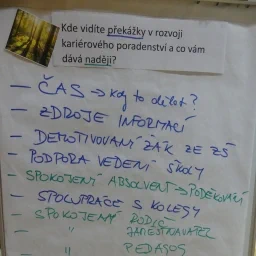 Kde vidíte překážky v rozvoji
kariérového poradenství a co vám
dává naději?
— ČAS → kdy to dělat?
— ZDROJE INFORMACÍ
— DEMOTIVOVANÍ ŽÁK ZE ZŠ
— PODPORA VEDENÍ ŠKOLY
— SPOKOJENÍ ABSOLVENTI → PODĚKOVÁNÍ
— SPOLUPRÁCE S KOLEGY
— SPOKOJENÝ RODIČ
— " ZAMĚSTNAVATEL
— " PEDAGOG